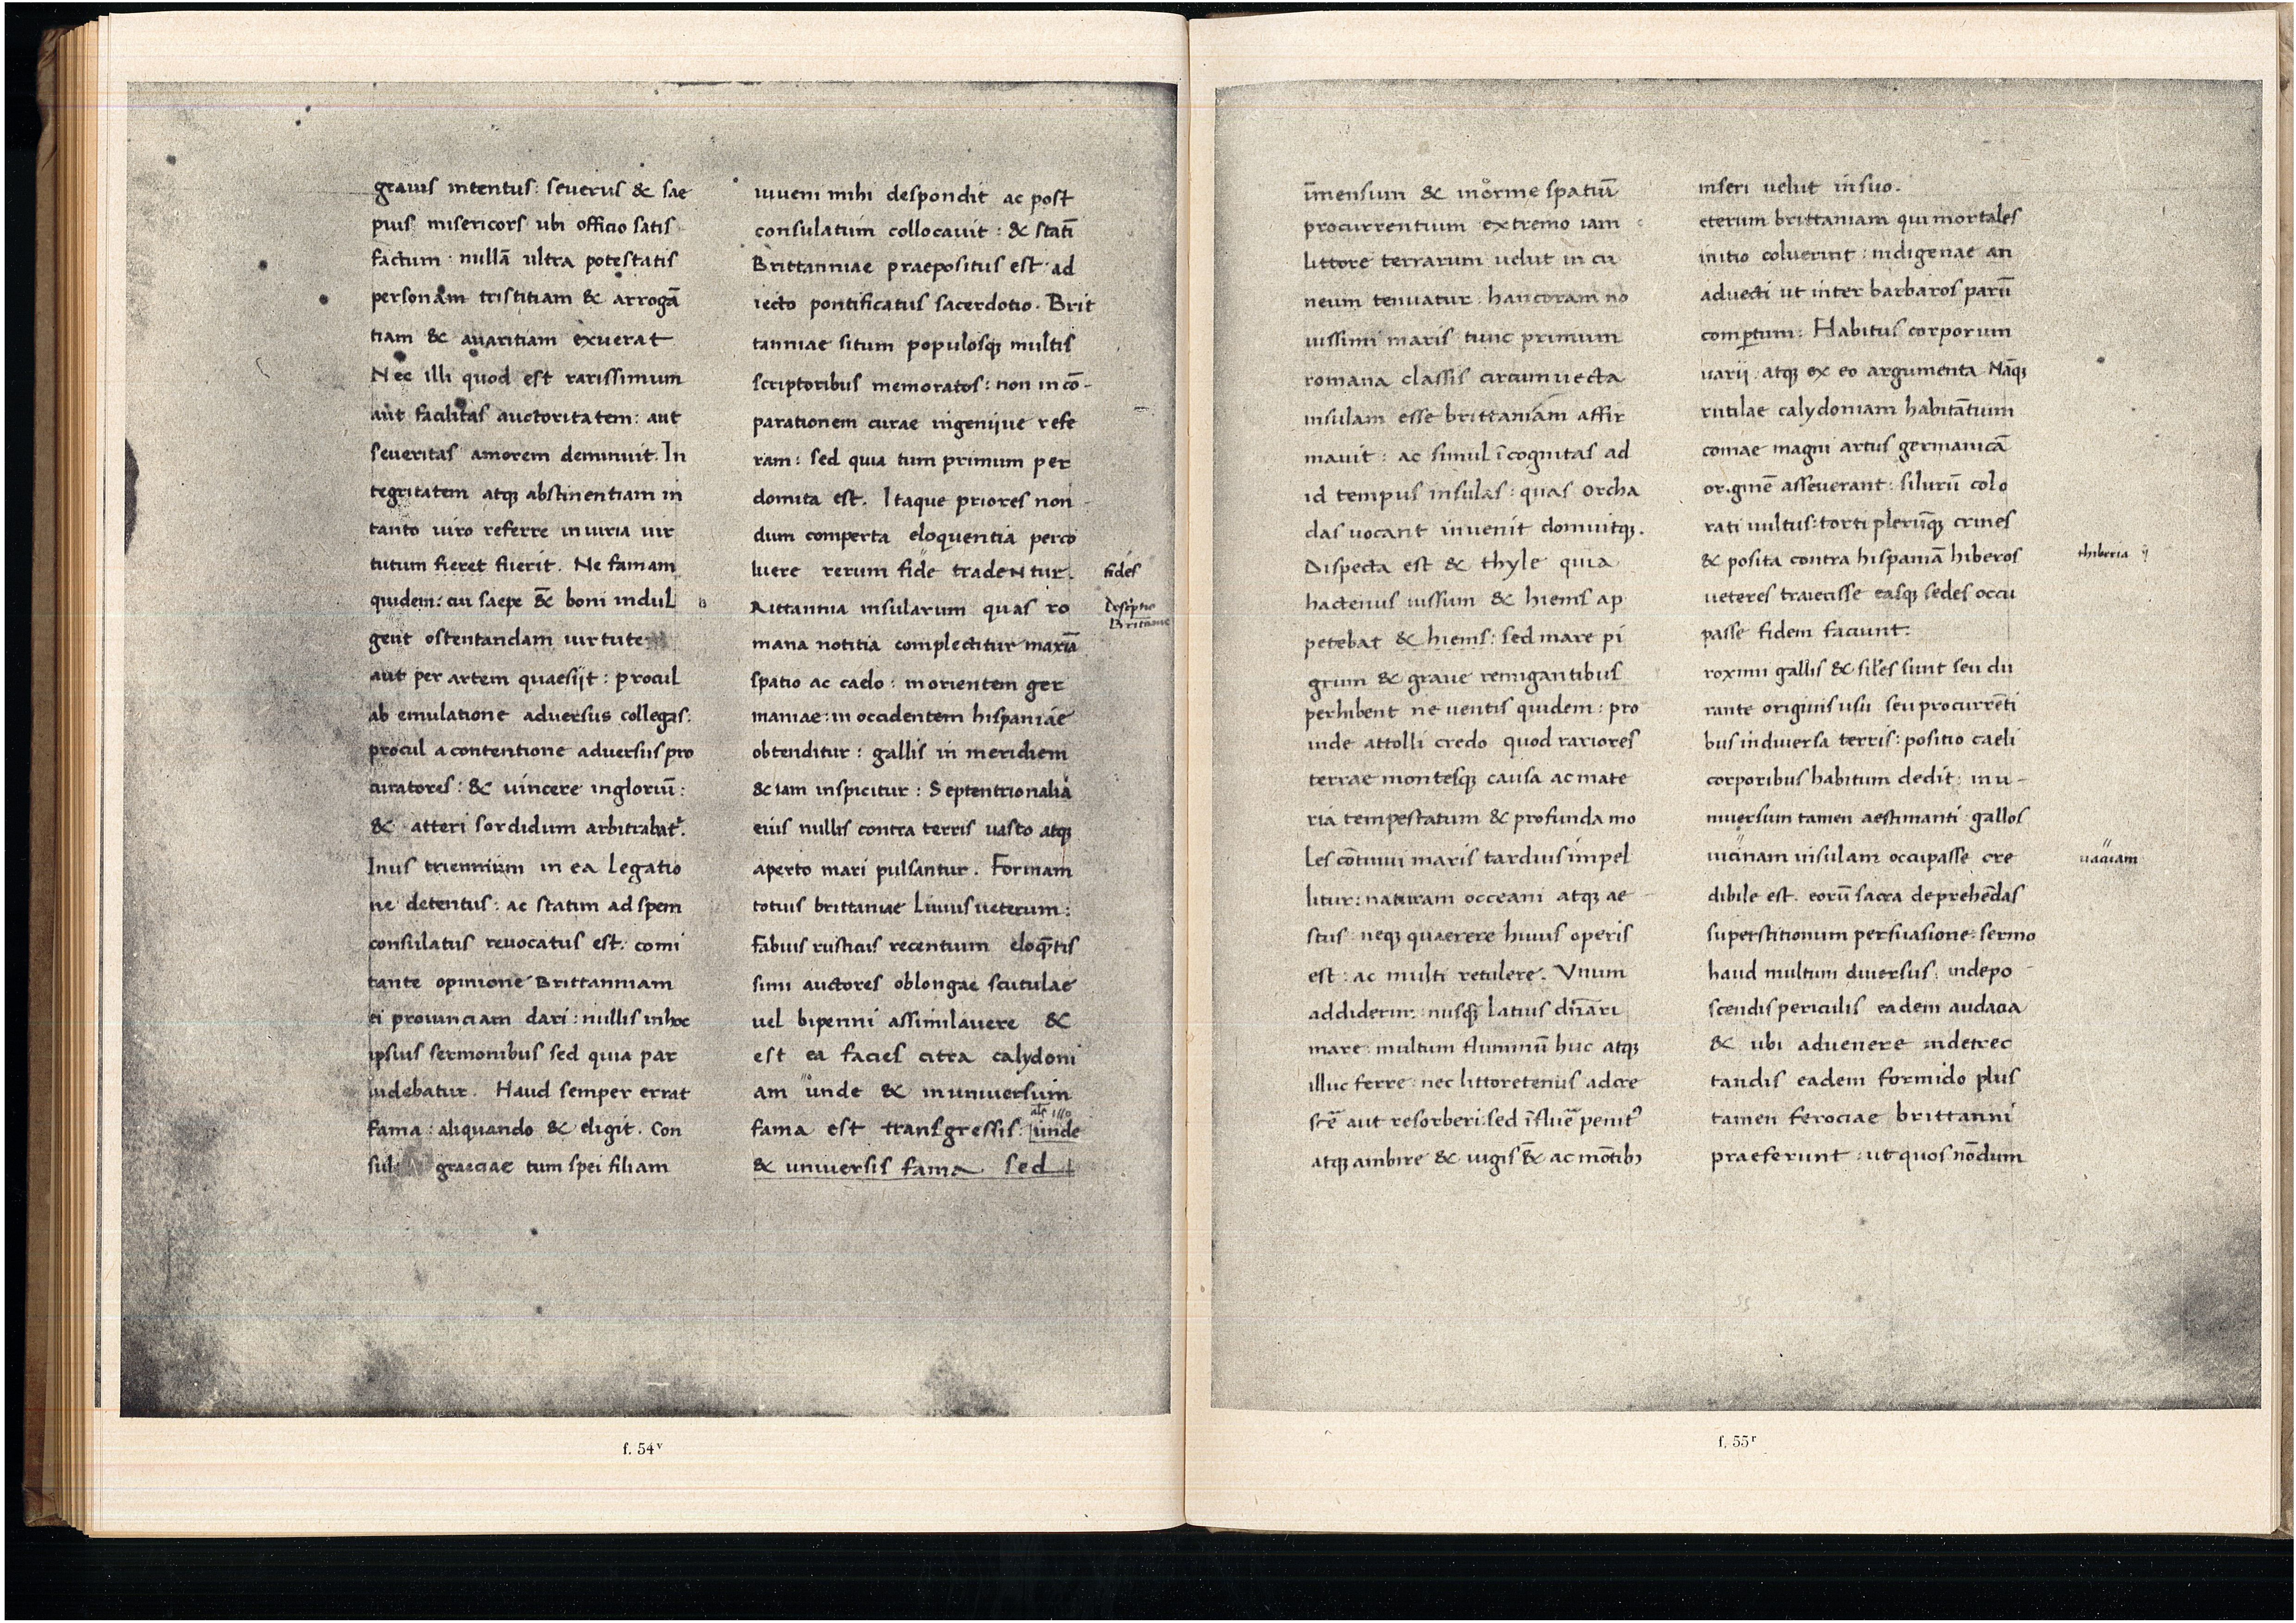 grauis intentus: seuerus & sae
pius misericors ubi officio satis
factum nullā ultra potestatis
personam tristitiam & arrogā
tiam & auaritiam exuerat
Nec illi quod est rarissimum
aut facilitas auctoritatem: aut
seueritas amorem deminuit. In
tegritatem atq; abstinentiam in
tanto uiro referre iniuria uir
tutum fieret fuerit. Ne famam
quidem: cui saepe &̄ boni indul
gent ostentandam uirtute
aut per artem quaesijt: procul
ab emulatione aduersus collegas:
procul a contentione aduersus pro
curatores: & uincere ingloriū:
& atteri sordidum arbitrabat᷑.
Inus triennium in ea Legatio
ne detentus: ac statim ad spem
consulatus reuocatus est: comi
tante opinione Brittanniam
ei prouinciam dari: nullis in hoc
ipsius sermonibus sed quia par
uidebatur. Haud semper errat
fama: aliquando & eligit. Con
sul graeciae tum spei filiam
iuueni mihi despondit ac post
consulatum collocauit: & statī
Brittanniae praepositus est ad
iecto pontificatus sacerdotio. Brit
tanniae situm populosq; multis
scriptoribus memoratos: non in cō-
parationem curae ingenijue refe
ram: sed quia tum primum per
domita est. Itaque priores non
dum comperta eloquentia perco
luere rerum fide tradeNtur.
fides
B
Rittannia insularum quas ro
Descriptio
Britanie
mana notitia complectitur maxīa
spatio ac caelo: in orientem ger
maniae: in occidentem hispaniae
obtenditur: gallis in meridiem
& iam inspicitur: Septentrionalia
eius nullis contra terris uasto atq;
aperto mari pulsantur. Formam
totius brittaniae Liuius ueterum:
fabius rusticus recentium eloq̄ntis
simi auctores oblongae scutulae
uel bipenni assimilauere &
est ea facies citra calydoni
am unde & in uniuersum
fama est transgressis: unde
& uniuersis fama sed
īmensum & inorme spatiū
procurrentium extremo iam
littore terrarum uelut in cu
neum tenuatur. hanc oram no
uissimi maris tunc primum
romana classis circumuecta
insulam esse brittaniam affir
mauit: ac simul īcognitas ad
id tempus insulas: quas orcha
das uocant inuenit domuitq;.
Dispecta est & thyle quia
hactenus iussum & hiems ap
petebat & hiems: sed mare pi
grum & graue remigantibus
perhibent ne uentis quidem: pro
inde attolli credo quod rariores
terrae montesq; causa ac mate
ria tempestatum & profunda mo
les cōtinui maris tardius impel
litur: naturam occeani atq; ae
stus neq; quaerere huius operis
est: ac multi retulere. Vnum
addiderim: nusq̄ Latius dn̄ari
mare: multum fluminū huc atq;
illuc ferre: nec littore tenus adcre
scē aut resorberi: sed īfluē penitꝰ
atq; ambire & iugis &̄ ac mōtibꝫ
inseri uelut in suo.
eterum brittaniam qui mortales
initio coluerint: indigenae an
aduecti ut inter barbaros parū
compertum: Habitus corporum
uarij atq; ex eo argumenta Nāq;
rutilae calydoniam habitātium
comae magni artus germanicā
originē asseuerant: silurū colo
rati uultus: torti plerūq; crines
& posita contra hispaniā hiberos
thiberia
ueteres traiecisse easq; sedes occu
passe fidem faciunt:
roximi gallis & siles sunt seu du
rante originis usu seu procurrēti
bus in diuersa terris: positio caeli
corporibus habitum dedit: in u-
niuersum tamen aestimanti gallos
uicinam insulam occupasse cre
uaciuam
dibile est. eorū sacra deprehēdas
superstitionum persuasione: sermo
haud multum diuersus: indepo
scendis periculis eadem audacia
& ubi aduenere indetrec
tandis eadem formido plus
tamen ferociae brittanni
praeferunt: ut quos nōdum
f. 54ᵛ
f. 55ʳ